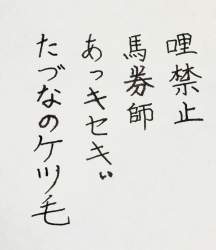 哩禁止
馬券師
あっキセキぃ
たづなのケツ毛